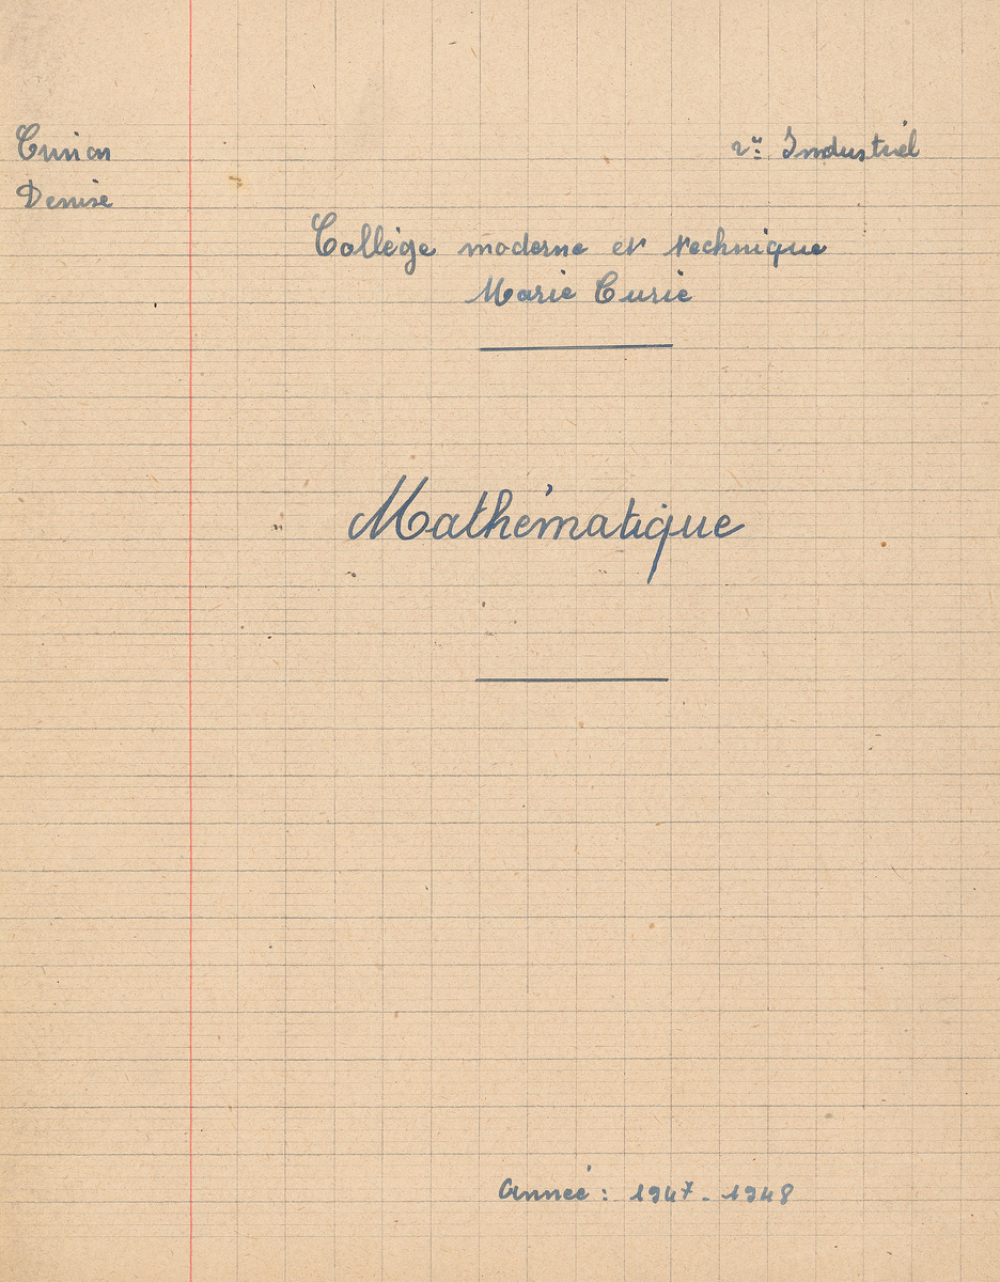 Denise
2e Industriel
Collège moderne et technique
Marie Curie
Mathématique
Année : 1947 - 1948